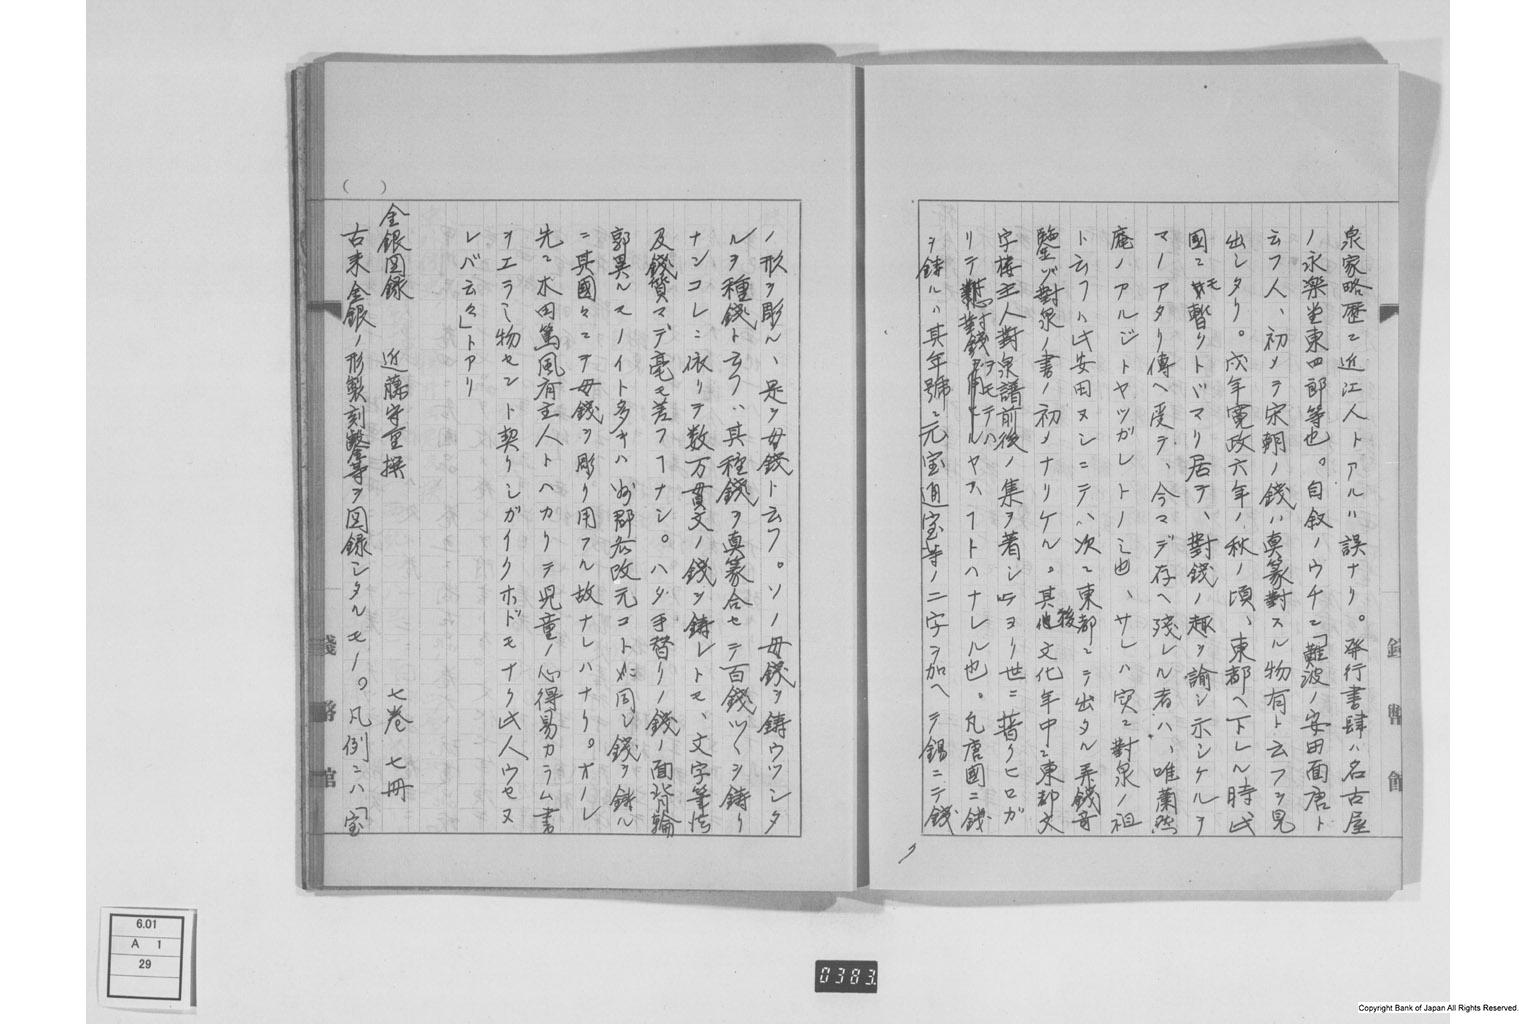 泉家略歴ニ近江人トアルハ誤ナリ。発行書肆ハ名古屋
ノ永楽堂東四郎等也。自叙ノウチニ「難波ノ安田面唐ト
云フ人、初メテ宋朝ノ銭ハ真篆對スル物有ト云フヲ見
出シタリ。戌年寛政六年ノ秋ノ頃、東都ヘ下レル時此
國ニモ暫クトドマリ居テ、對銭ノ趣ヲ諭シ示シケルヲ
マノアタリ傳ヘ受テ、今マデ存ヘ残レル者ハ、唯蘭
庵ノアルジトヤツガレトノミ也、サレハ実ニ對泉ノ祖
ト云フハ此安田ヌシニテハ次ニ東都ニテ出タル弄銭奇
鑒ゾ對泉ノ書ノ初メナリケル。其後文化年中ニ東都文
字楼主人對泉譜前後ノ集ヲ著シ
リテ對銭ヲモテハヤスコトハナレル也。凡唐國ニ銭
ヲ鋳ルハ其年號ニ元宝通宝等ノ二字ヲ加ヘテ錫ニテ銭
ノ形ヲ彫ル、是ヲ母銭ト云フ。ソノ母銭ヲ鋳ウツシタ
ルヲ種銭ト云フ、其種銭ヲ真篆合セテ百銭ツヽヲ鋳リ
ナシコレニ依リテ数万貫文ノ銭ヲ鋳レトモ、文字筆法
及銭質マデ毫モ差フコナシ。ハタ手替リノ銭ノ面背輪
郭異ルモノイト多キハ
ニ其國々ニテ母銭ヲ彫リ用フル故ナレハナリ。オノレ
先ニ水田篤風有主人トハカリテ児童ノ心得易カラム書
ヲエラミ物セント契リシガイクホドモナク此人ウセヌ
レバ云々」トアリ
金銀図録 近藤守重撰 七巻 七冊
古来金銀ノ形製刻鑿等ヲ図録シタルモノ。凡例ニハ「宝
( )
銭幣館
6.01
A 1
29
0383
Copyright Bank of Japan All Rights Reserved.